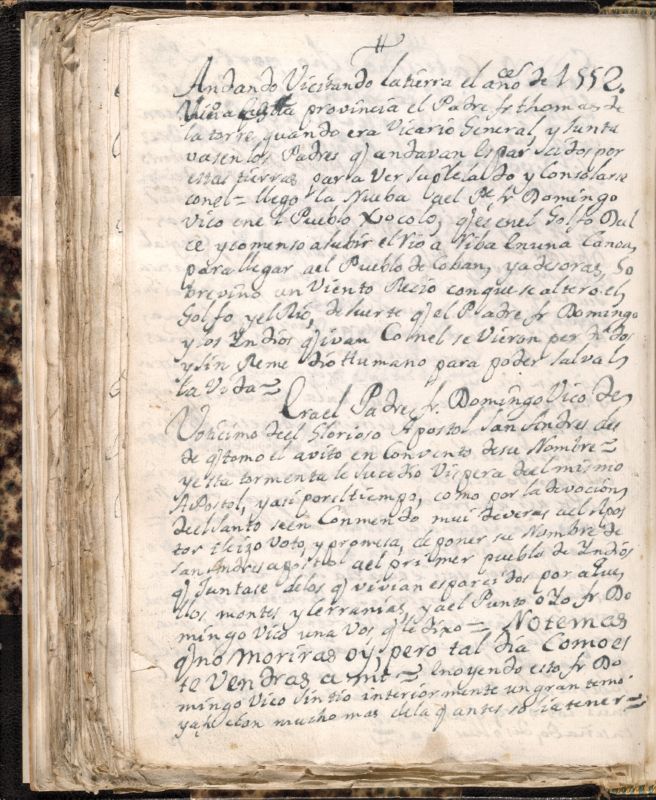 Andando Vicitando la tierra el año de 1552.
Vino a esta provincia el Padre fr thomas de
la torre quando era Vicario General, y Junta
vasen los Padres q andavan Esparsidos por
estas tierras para Ver su plelado y Consolarse
conel = llego la Nueba ael Pe fr Domingo
Vico en el Pueblo Xocolo, q es enel Golfo Dul
ce y comenso a Subir el Rio a Riba En una Canoa,
para llegar ael Pueblo de Coban, y a desoras, So
brevino un Viento Recio con que se altero el
Golfo y el Rio, de suerte q el Pladre fr Domingo
y los Indios q ivan Con el se Vieron per didos
y sin Reme dio Humano para poder salval
la Vida =
Erael Padre fr. Domingo Vico de
Voticimo deel Glorioso Apostol San Andres des
de q tomo el avito en Convento de su Nombre =
y esta tormenta le sucedio Vispera deel mismo
Apostol, y asi por el tiempo, como por la devocion
deel Santo se en Conmendo mui de veras ael Apos
tol e hizo Voto, y promesa, de poner su Nombre de
San Andres apostol ael primer pueblo de Indios
q Juntase delos q vivian esparcidos por aque
llos montes y serranias, y ael Punto oyo fr Do
mingo Vico una Vos, q le dixo = No temas
q no moriras oy, pero tal dia Como es
te Vendras a mi = En oyendo esto fr Do
mingo Vico Sintio interiormente un gran temo.
y afliccion mucho mas dela q antes solia tener =